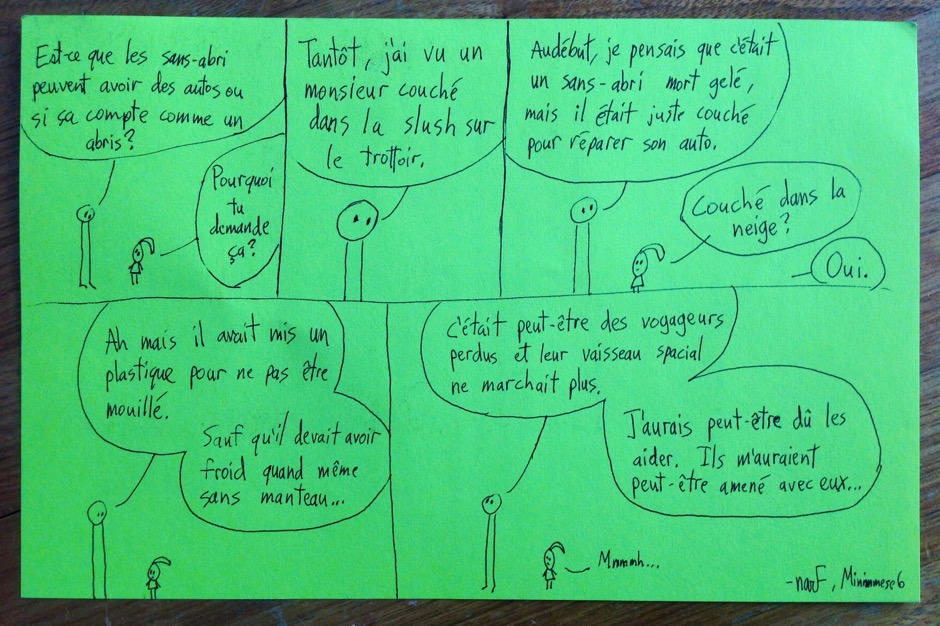 Est-ce que les sans-abri
peuvent avoir des autos ou
si ça compte comme un
abris?
Pourquoi
tu
demande
ça?
Tantôt, j'ai vu un
monsieur couché
dans la slush sur
le trottoir.
Audébut, je pensais que c'était
un sans-abri mort gelé,
mais il était juste couché
pour réparer son auto.
Couché dans la
neige?
Oui.
Ah mais il avait mis un
plastique pour ne pas être
mouillé.
Sauf qu'il devait avoir
froid quand même
sans manteau...
C'était peut-être des voyageurs
perdus et leur vaisseau spacial
ne marchait plus.
J'aurais peut-être dû les
aider. Ils m'auraient
peut-être amené avec eux...
Mmmmh...